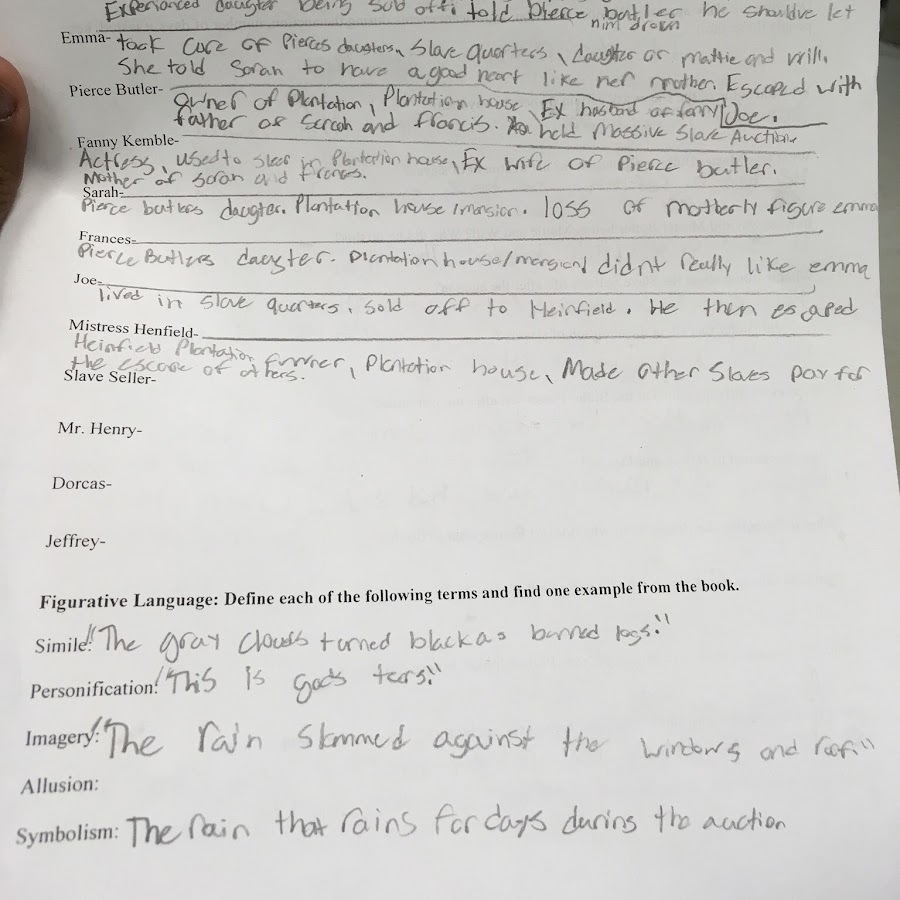 Experianced daugter being sold off. told Pierce butler he shouldve let
him drown
Emma- took care of Pierces daugters, Slave quarters, Daugter of mattie and will.
She told Sarah to have a good heart like her mother. Escaped with
Joe.
Pierce Butler- owner of Plantation, Plantation house, Ex husband of fanny
father of Sarah and francis. held Massive Slave Auction
Fanny Kemble-
Actress, used to sleep in Plantation house, Ex wife of Pierce butler.
Mother of Sarah and Frances.
Sarah-
Pierce butlers daugter. Plantation house/mansion. loss of motherly figure emma
Frances-
Pierce Butlers daugter. Plantation house/mansion/ didnt really like emma
Joe-
lived in slave quarters, sold off to Heinfield. He then escaped
Mistress Henfield-
Heinfield Plantation owner, Plantation house, Made other Slaves pay for
the escape of others.
Slave Seller-
Mr. Henry-
Dorcas-
Jeffrey-
Figurative Language: Define each of the following terms and find one example from the book.
Simile: "The gray clouds turned black as burned logs."
Personification: "This is gods tears."
Imagery: "The rain slammed against the windows and roof."
Allusion:
Symbolism: The rain that rains for days during the auction